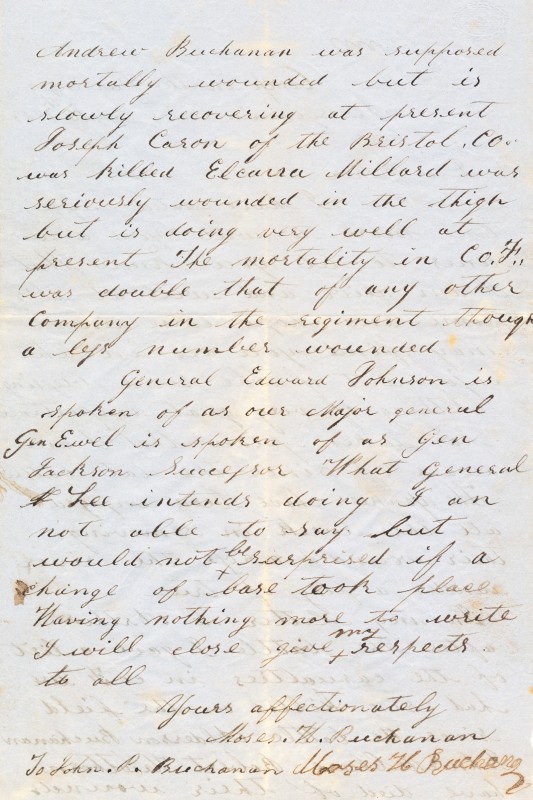 Andrew Buchanan was supposed
mortally wounded but is
slowly recovering at present
Joseph Caron of the Bristol. Co.
was killed Elcarra Millard was
seriously wounded in the thigh
but is doing very well at
present The mortality in Co. F.,
was double that of any other
Company in the regiment though
a less number wounded
General Edward Johnson is
spoken of as our Major general
Gen Ewel is spoken of as Gen
Jackson Successor What general
Lee intends doing I an
not able to say. but
would not be surprised if a
change of base took place
Having nothing more to write
I will close give my respects
to all
Yours affectionately
Moses. H. Buchanan
To John. P. Buchanan Moses H Buchanan